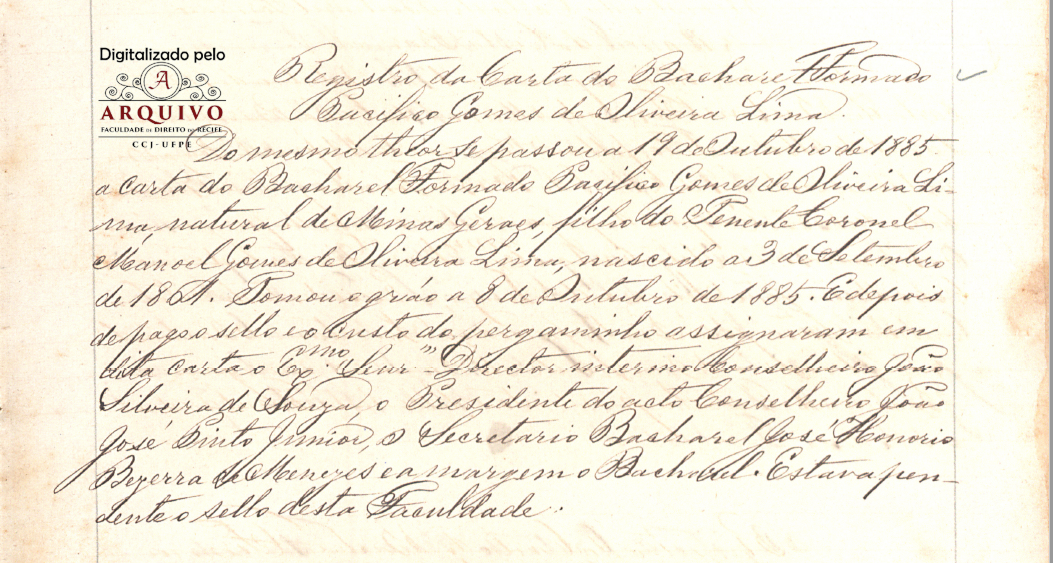 Digitalizado pelo
A
ARQUIVO
FACULDADE DE DIREITO DO RECIFE
CCJ-UFPE
Registro da Carta do Bacharel Formado
Pacifico Gomes de Oliveira Lima.
Do mesmo theor se passou a 19 de Outubro de 1885
a carta do Bacharel Formado Pacifico Gomes de Oliveira Li-
ma, natural de Minas Geraes, filho do Tenente Coronel
Manoel Gomes de Oliveira Lima, nascido a 3 de Setembro
de 1861. Tomou o gráo a 8 de Outubro de 1885. E depois
de pago o sello e o custo do pergaminho assignaram em
dita carta o Exmo. Snr. Director interino Conselheiro João
Silveira de Souza, o Presidente do acto Conselheiro João
José Pinto Junior, o Secretario Bacharel José Honorio
Bezerra de Menezes e a margem o Bacharel. Estava pen-
dente o sello desta Faculdade.